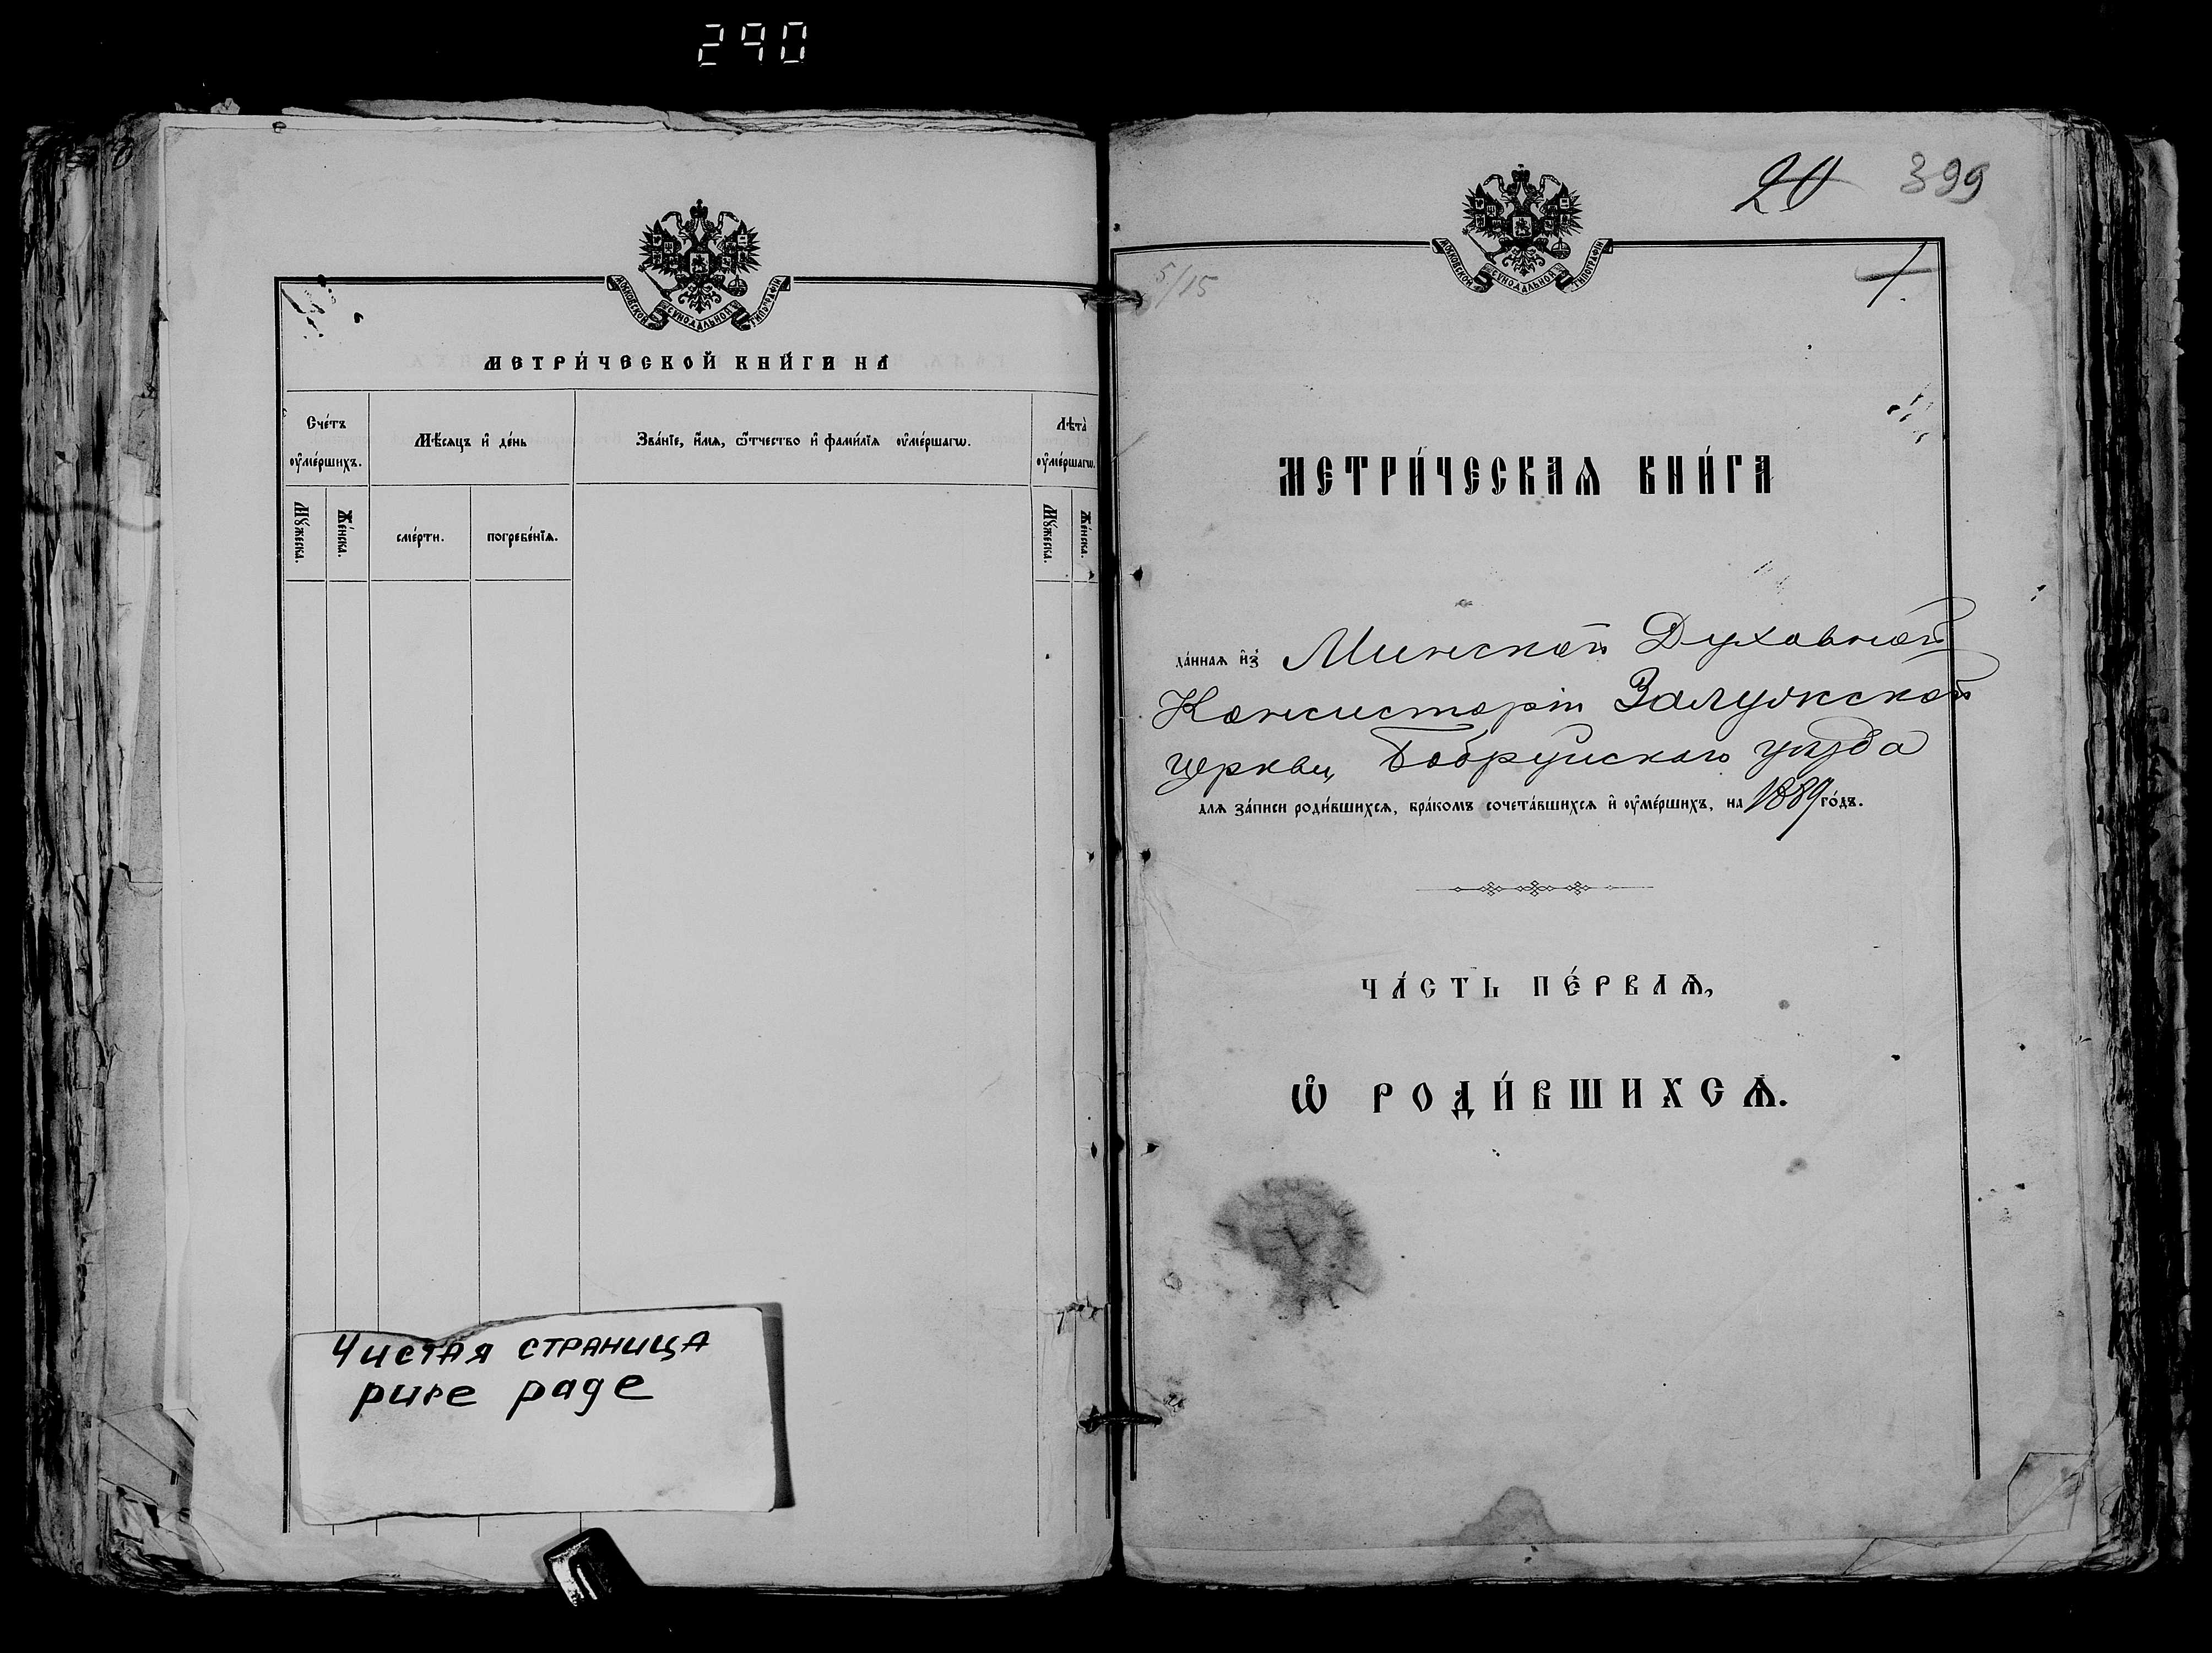 290
МОСКОВСКОЙ СѴНОДАЛЬНОЙ ТИПОГРАФІИ
МЕТРИ́ЧЕСКОЙ КНИ́ГИ НА
Сче́тъ оу҆ме́ршихъ.
Мѣ́сяцъ и҆ де́нь
Зва́нїе, и҆́мѧ, ѻ҆́тчество и҆ фами́лїѧ оу҆ме́ршагѡ.
Лѣ́та̀ оу҆ме́ршагѡ.
Мꙋ́жеска.
Же́нска.
сме́рти.
погребе́нїѧ.
Мꙋ́жеска.
Же́нска.
Чистая страница
pure page
20 399
МОСКОВСКОЙ СѴНОДАЛЬНОЙ ТИПОГРАФІИ
5/15
1.
МЕТРИ́ЧЕСКАѦ КНИ́ГА
да́ннаѧ и҆з̾ Минской Духовной
Консисторіи Залужской
церкви, Бобруйскаго уѣзда
для за́писи роди́вшихсѧ, бра́комъ сочета́вшихсѧ и҆ оу҆ме́ршихъ, на 1889 го́дъ.
ЧА́СТЬ ПЕ́РВАѦ,
Ѡ҆ РОДИ́ВШИХСѦ.